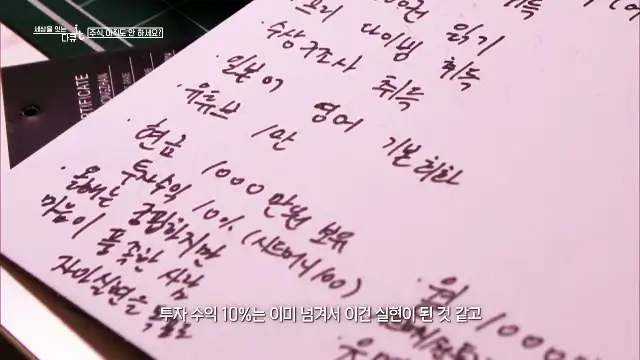 세상을 잇는
다큐 it
주식, 아직도 안 하세요?
CERTIFICATE
읽기
프리 다이빙 취득
수상구조사 취득
일본어 영어 기본회화
유튜브 1만
현금 1000만원 보유
투자수익 10%
올해는 궁핍하지만
마음이 풍족한 사람
자아실현을
월 1000
투자 수익 10%는 이미 넘겨서 이건 실현이 된 것 같고